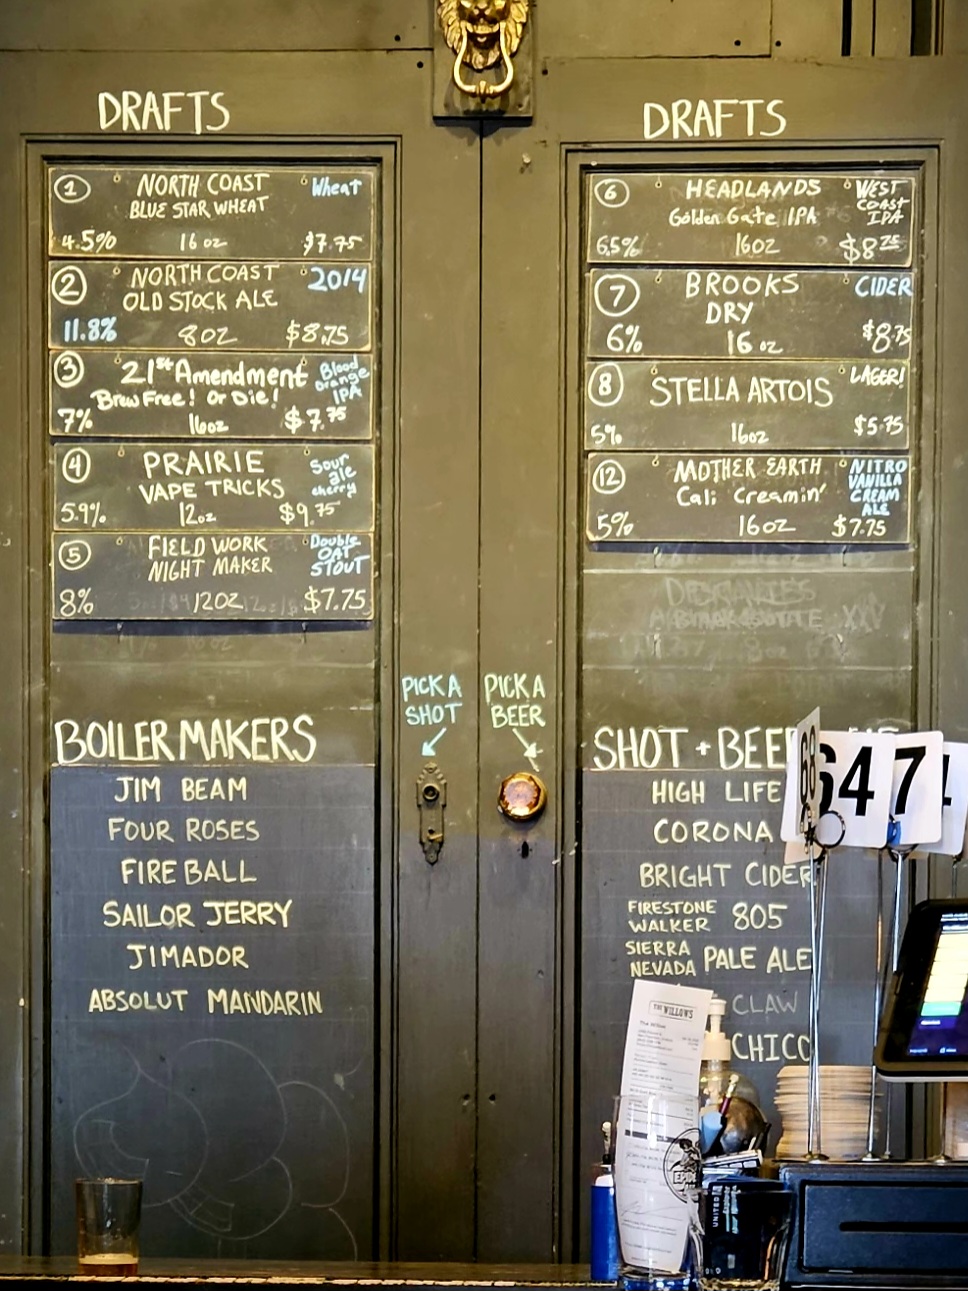 DRAFTS
1 NORTH COAST Wheat
BLUE STAR WHEAT
4.5% 16 oz $7.75
2 NORTH COAST 2014
OLD STOCK ALE
11.8% 8 OZ $8.75
3 21st Amendment Blood Orange IPA
Brew Free! Or Die!
7% 16oz $7.75
4 PRAIRIE Sour ale cherry
VAPE TRICKS
5.9% 12oz $9.75
5 FIELD WORK Double OAT STOUT
NIGHT MAKER
8% 12OZ $7.75
BOILERMAKERS
JIM BEAM
FOUR ROSES
FIREBALL
SAILOR JERRY
JIMADOR
ABSOLUT MANDARIN
PICK A SHOT
PICK A BEER
DRAFTS
6 HEADLANDS WEST COAST IPA
Golden Gate IPA
6.5% 16oz $8.25
7 BROOKS CIDER
DRY
6% 16 oz $8.75
8 STELLA ARTOIS LAGER!
5% 16oz $5.75
12 MOTHER EARTH NITRO VANILLA CREAM ALE
Cali Creamin'
5% 16oz $7.75
SHOT + BEER
HIGH LIFE
CORONA
BRIGHT CIDER
FIRESTONE WALKER 805
SIERRA NEVADA PALE ALE
CLAW
CHICO
64
7
THE WILLOWS
The Willows
UNITED